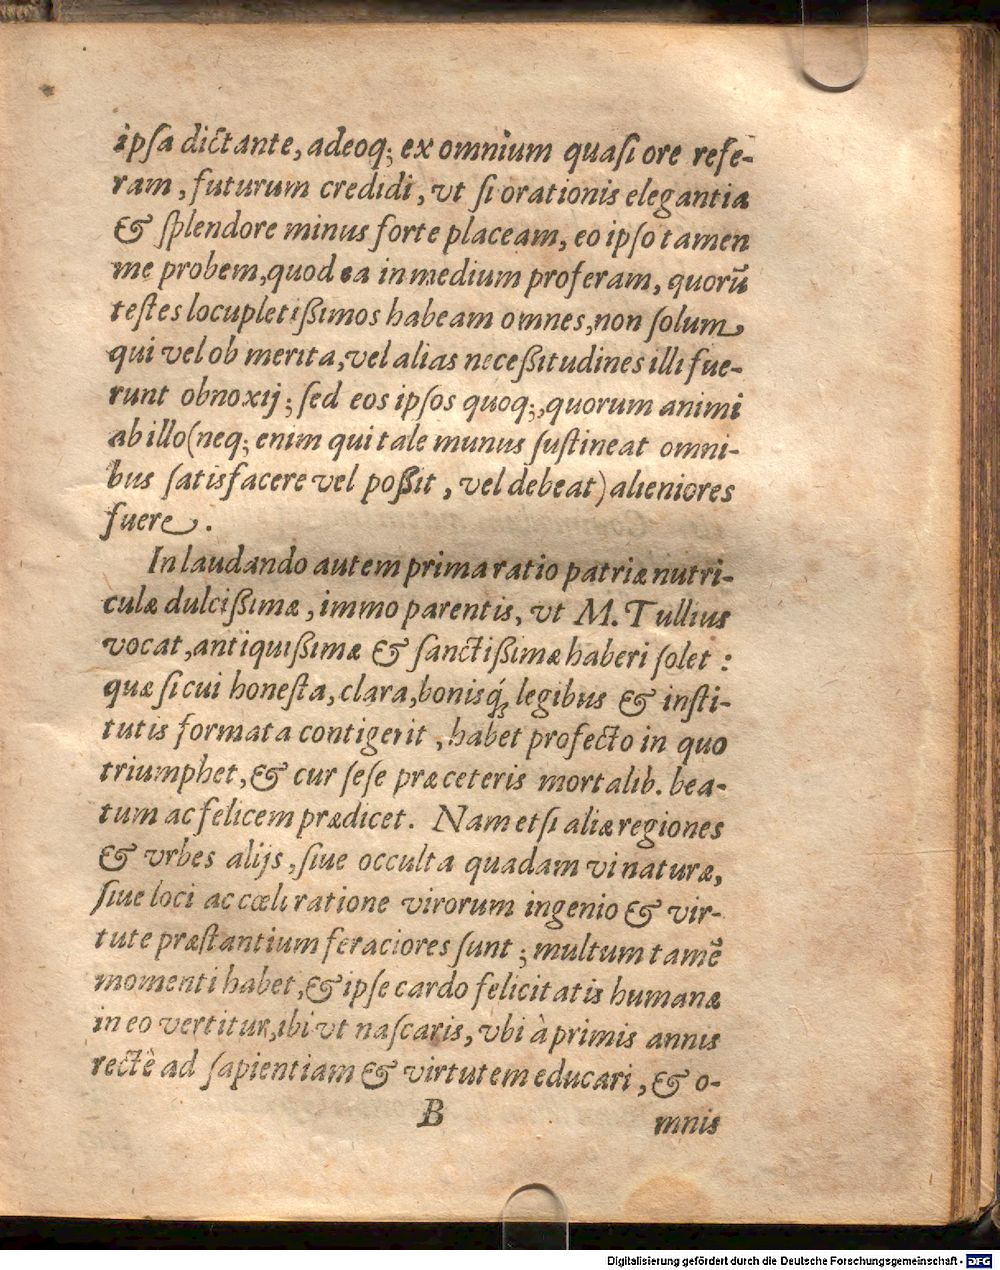 ipſa dictante, adeoq; ex omnium quaſi ore refe-
ram, futurum credidi, vt ſi orationis elegantia
& ſplendore minus forte placeam, eo ipſo tamen
me probem, quod ea in medium proferam, quorū
teſtes locupletißimos habeam omnes, non ſolum
qui vel ob merita, vel alias neceßitudines illi fue-
runt obnoxij; ſed eos ipſos quoq;, quorum animi
ab illo (neq; enim qui tale munus ſuſtineat omni-
bus ſatisfacere vel poßit, vel debeat) alieniores
fuere.
In laudando autem prima ratio patriæ nutri-
culæ dulcißimæ, immo parentis, vt M. Tullius
vocat, antiquißimæ & ſanctißimæ haberi ſolet:
quæ ſi cui honeſta, clara, bonisq́; legibus & inſti-
tutis formata contigerit, habet profecto in quo
triumphet, & cur ſeſe præ ceteris mortalib. bea-
tum ac felicem prædicet. Nam etſi aliæ regiones
& vrbes alijs, ſiue occulta quadam vi naturæ,
ſiue loci ac cœli ratione virorum ingenio & vir-
tute præſtantium feraciores ſunt; multum tamē
momenti habet, & ipſe cardo felicitatis humanæ
in eo vertitur, ibi vt naſcaris, vbi à primis annis
rectè ad ſapientiam & virtutem educari, & o-
B mnis
Digitalisierung gefördert durch die Deutsche Forschungsgemeinschaft - DFG